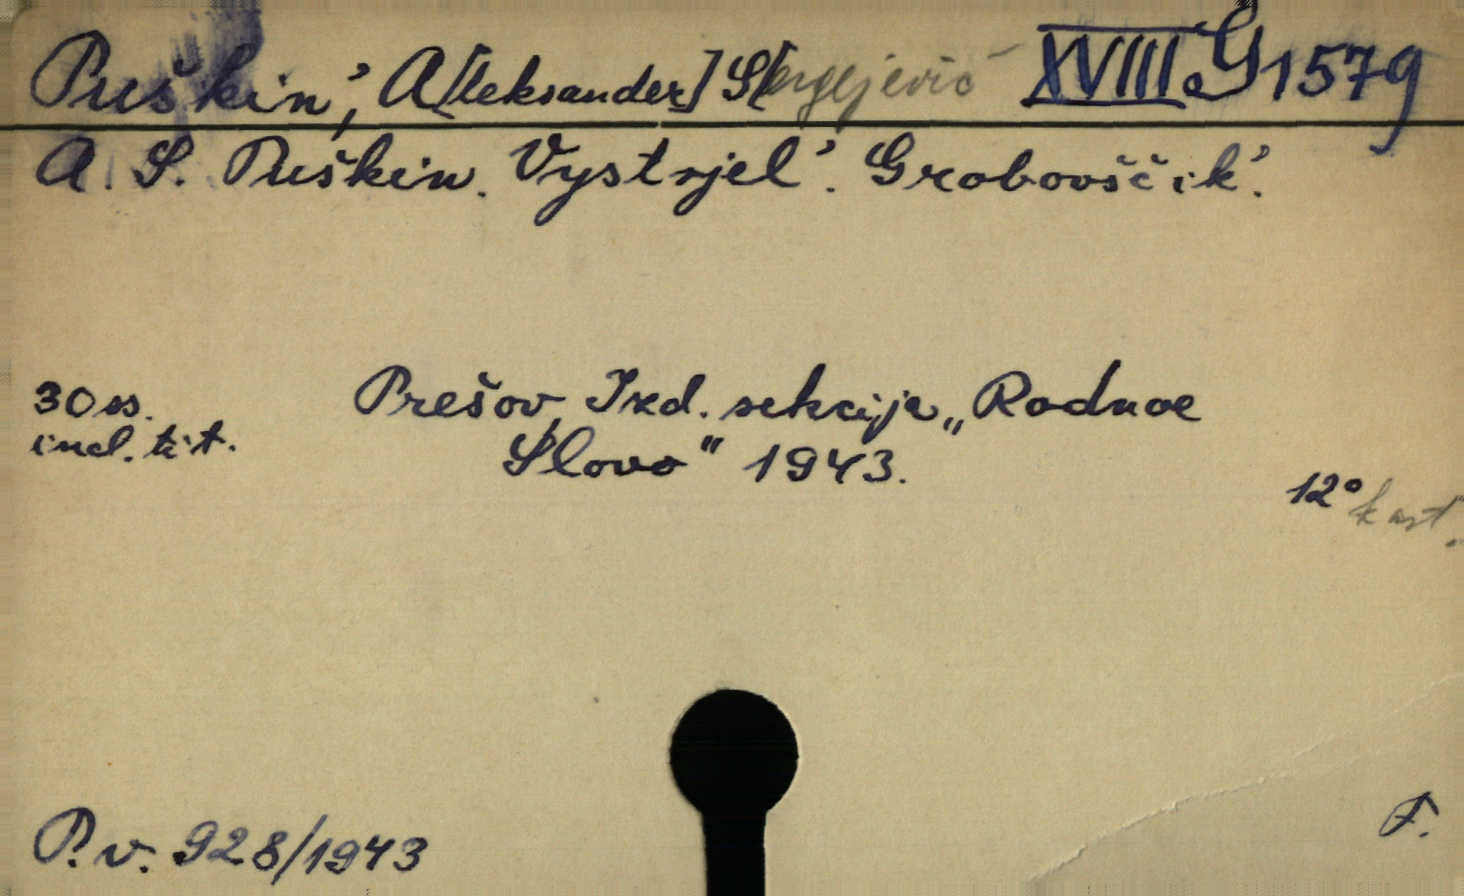 Puškin', A[leksander] S[ergejevič XVIII.G1579
A. S. Puškin. Vystrjel'. Grobovščik'.
30 ss. Prešov, Izd. sekcija „Rodnoe
incl. tit. Slovo" 1943.
12° kart.
P. v. 928/1943 F.